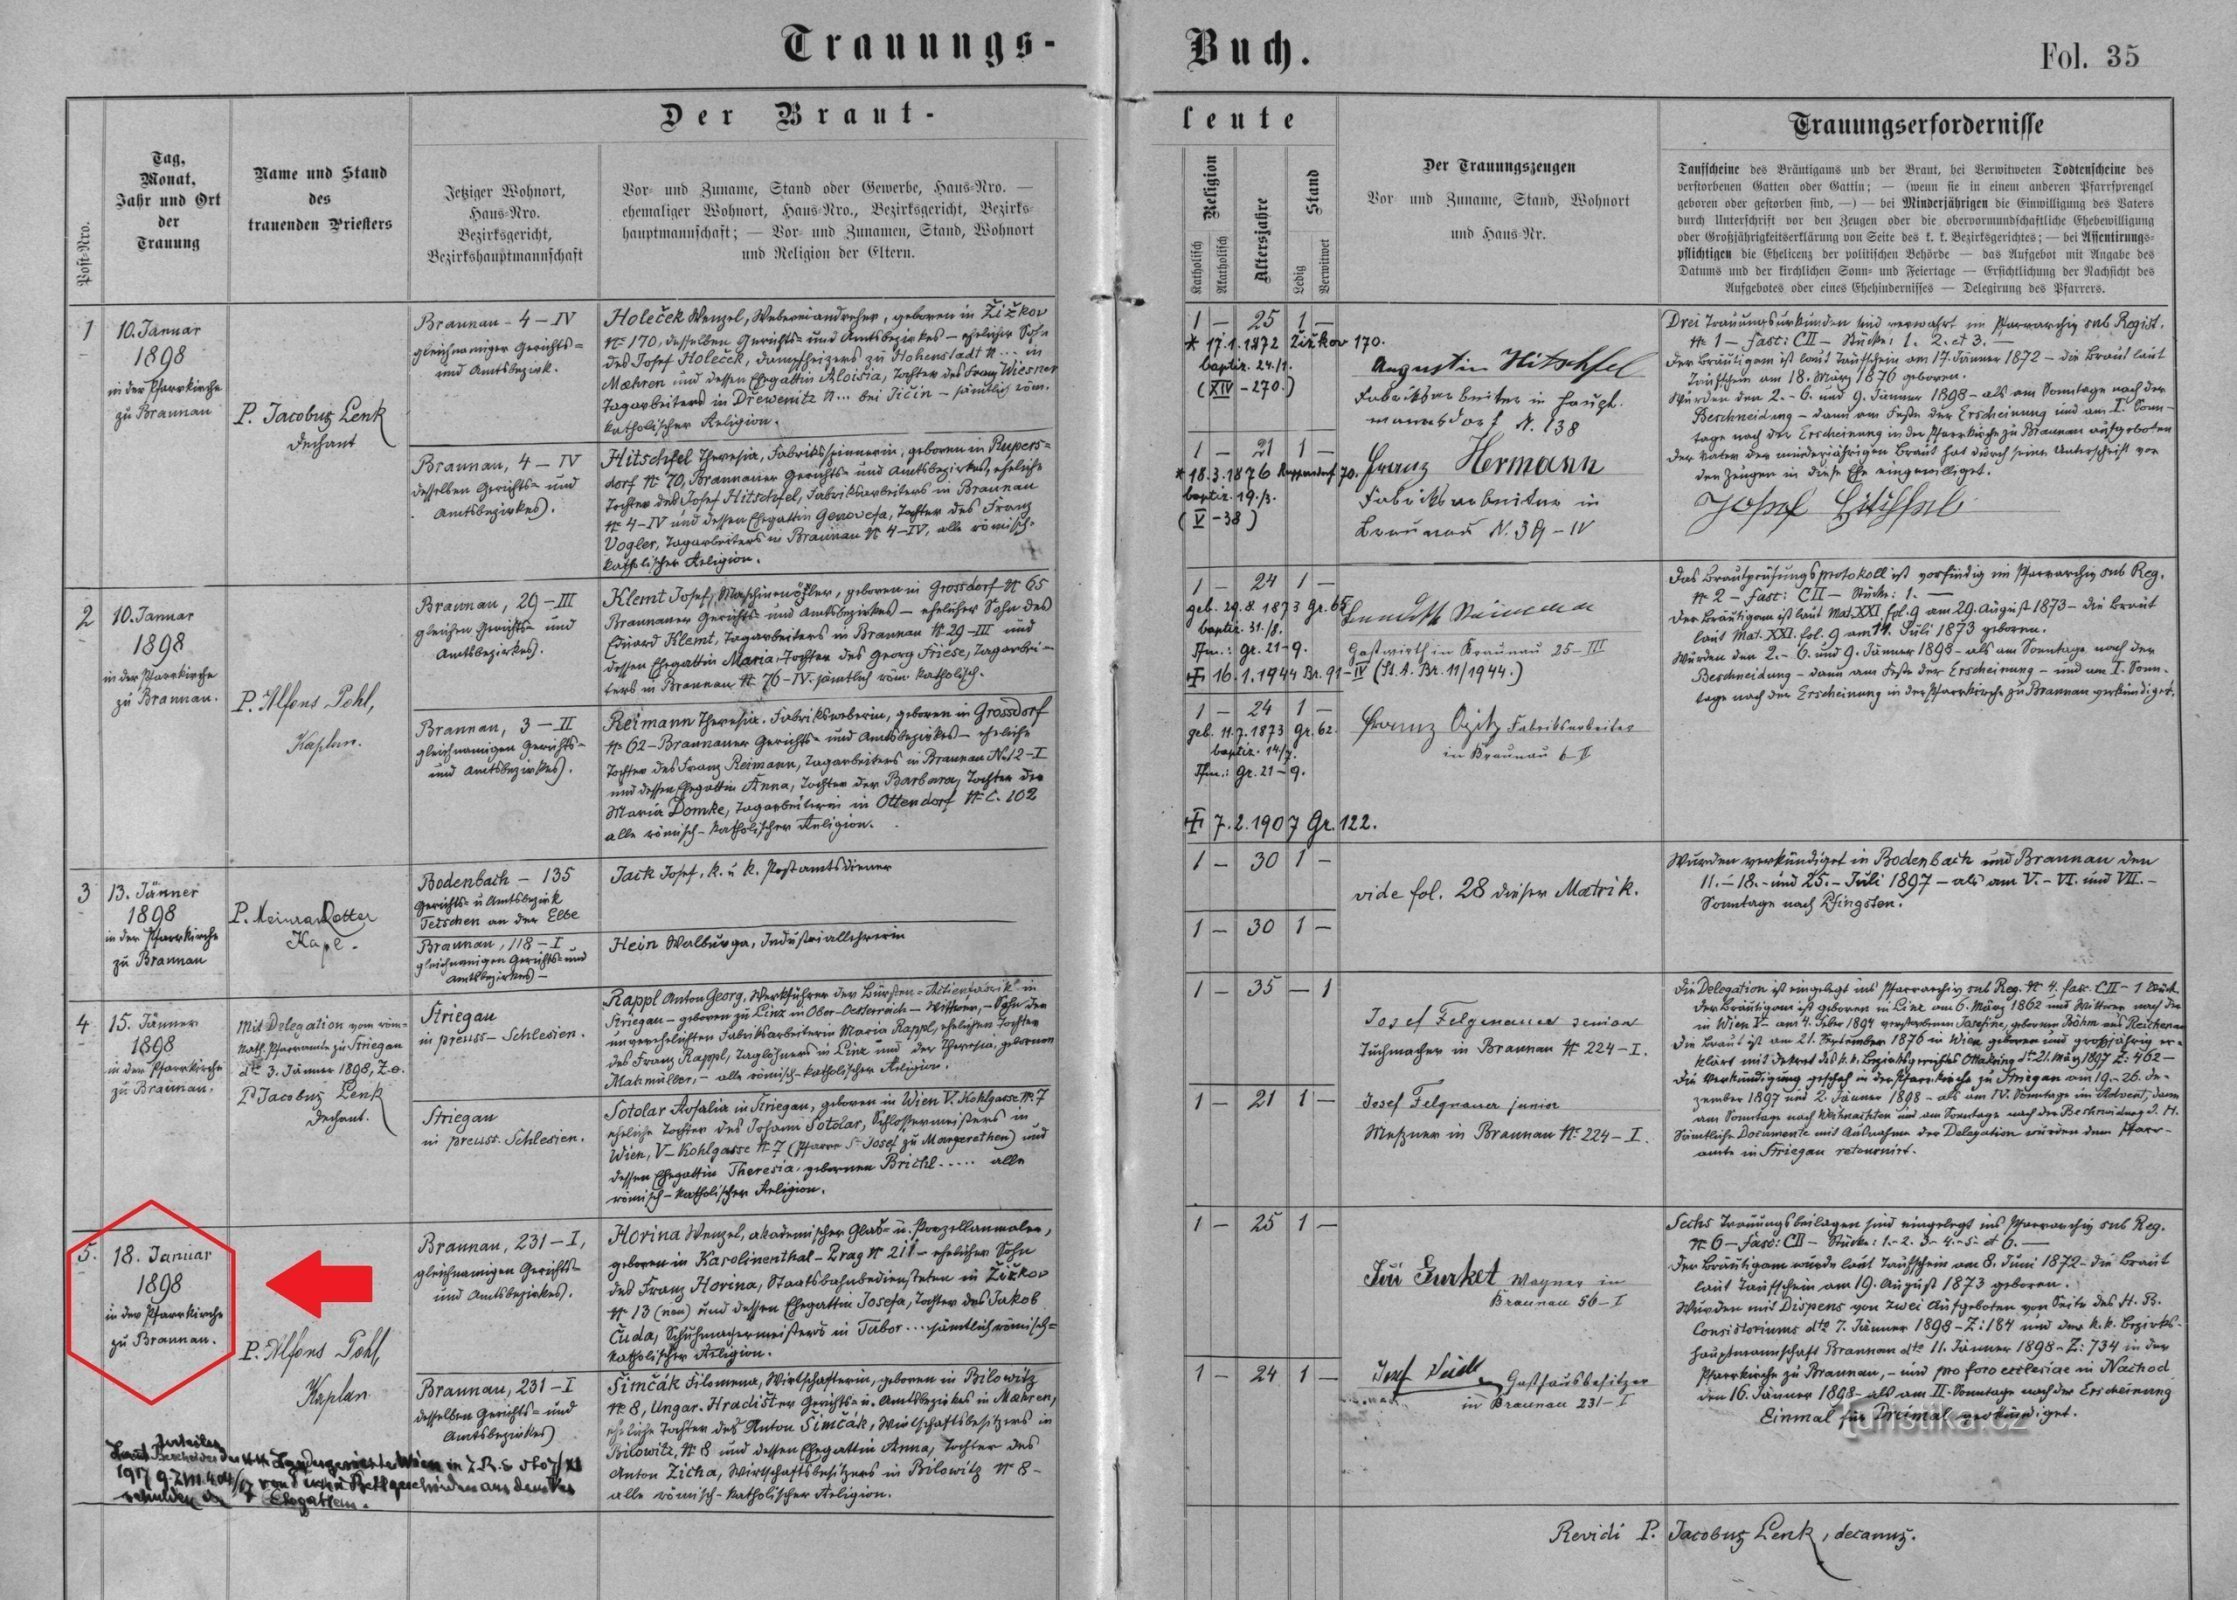 Trauungs-Buch.
Fol. 35
Der Braut-leute
Post-Nro.
Tag,
Monat,
Jahr und Ort
der
Trauung
Name und Stand
des
trauenden Priesters
Jetziger Wohnort,
Haus-Nro.
Bezirksgericht,
Bezirkshauptmannschaft
Vor- und Zuname, Stand oder Gewerbe, Haus-Nro. —
ehemaliger Wohnort, Haus-Nro., Bezirksgericht, Bezirks-
hauptmannschaft; — Vor- und Zunamen, Stand, Wohnort
und Religion der Eltern.
Religion
Katholisch
Akatholisch
Altersjahre
Stand
Ledig
Verwitwet
Der Trauungszeugen
Vor- und Zuname, Stand, Wohnort
und Haus-Nr.
Trauungserfordernisse
Taufscheine des Bräutigams und der Braut, bei Verwitweten Todtenscheine des
verstorbenen Gatten oder Gattin; — (wenn sie in einem anderen Pfarrsprengel
geboren oder gestorben sind, —) — bei Minderjährigen die Einwilligung des Vaters
durch Unterschrift vor den Zeugen oder die obervormundschaftliche Ehebewilligung
oder Großjährigkeitserklärung von Seite des k. k. Bezirksgerichtes; — bei Assentirungs-
pflichtigen die Ehelicenz der politischen Behörde — das Aufgebot mit Angabe des
Datums und der kirchlichen Sonn- und Feiertage — Ersichtlichung der Nachsicht des
Aufgebotes oder eines Ehehindernisses — Delegirung des Pfarrers.
1
10. Januar
1898
in der Pfarrkirche
zu Braunau
P. Jacobus Lenk
Dechant
Braunau - 4 - IV
gleichnamiger Gerichts-
und Amtsbezirk.
Holeček Wenzel, Webereiandreher, geboren in Žižkov
N° 170, desselben Gerichts- und Amtsbezirkes - ehelicher Sohn
des Josef Holeček, Dampfheizers zu Hohenstadt N... in
Mæhren und dessen Ehegattin Aloisia, Tochter des Franz Wiesner
Tagarbeiters in Dřewenitz N... bei Jičin - sämtlich röm.
katholischer Religion.
Braunau, 4 - IV
desselben Gerichts- und
Amtsbezirkes).
Hitschfel Theresia, Fabriksspinnerin, geboren in Rupers-
dorf N° 70, Braunauer Gerichts- und Amtsbezirkes, eheliche
Tochter des Josef Hitschfel, Fabriksarbeiters in Braunau
N° 4-IV und dessen Ehegattin Genovefa, Tochter des Franz
Vogler, Tagarbeiters in Braunau N° 4-IV, alle römisch-
katholischer Religion.
1 - 25 1 -
* 17.1.1872 Žižkov 170.
baptiz. 24./1.
(XIV - 270.)
1 - 21 1 -
* 18.3.1876 Ruppersdorf 70.
baptiz. 19./3.
(V - 38)
Augustin Hitschfel
Fabriksarbeiter in Haupt-
mannsdorf N. 138
Franz Hermann
Fabriksarbeiter in
Braunau N. 39 - IV
Drei Trauungsurkunden sind verwahrt im Pfarrarchiv sub Regist.
N° 1 - fasc: CII - Stücke: 1. 2. et 3. -
Der Bräutigam ist laut Taufschein am 17. Jänner 1872 - die Braut laut
Taufschein am 18. März 1876 geboren.
Wurden den 2. - 6. und 9. Jänner 1898 - als am Sonntage nach der
Beschneidung - dann am Feste der Erscheinung und am I. Sonn-
tage nach der Erscheinung in der Pfarrkirche zu Braunau aufgeboten
Der Vater der minderjährigen Braut hat durch seine Unterschrift vor
den Zeugen in diese Ehe eingewilliget.
Josef Hitschfel
2
10. Januar
1898
in der Pfarrkirche
zu Braunau.
P. Alfons Pohl,
Kaplan.
Braunau, 29 - III
gleichen Gerichts- und
Amtsbezirkes).
Klemt Josef, Maschinenöhler, geboren in Grossdorf N° 65
Braunauer Gerichts- und Amtsbezirkes - ehelicher Sohn des
Eduard Klemt, Tagarbeiters in Braunau N° 29-III und
dessen Ehegattin Maria, Tochter des Georg Friese, Tagarbei-
ters in Braunau N° 76-IV. sämtlich röm. katholisch.
Braunau, 3 - II
gleichnamigen Gerichts-
und Amtsbezirkes).
Reimann Theresia. Fabriksweberin, geboren in Grossdorf
N° 62 - Braunauer Gerichts- und Amtsbezirkes - eheliche
Tochter des Franz Reimann, Tagarbeiters in Braunau N° 12 - I
und dessen Ehegattin Anna, Tochter der Barbara, Tochter der
Maria Domke, Tagarbeiterin in Ottendorf N° C. 102
alle römisch-katholischer Religion.
1 - 24 1 -
geb. 29.8.1873 Gr. 65
baptiz. 31./8.
Tfm.: Gr. 21 - 9.
+ 16.1.1944 Br. 91 - IV (St. A. Br. 11/1944.)
1 - 24 1 -
geb. 11.7.1873 Gr. 62.
baptiz. 14/7.
Tfm.: Gr. 21 - 9.
+ 7.2.1907 Gr. 122.
Gastwirth in Braunau 25-III
Franz Opitz Fabriksarbeiter
in Braunau 6-II
Das Brautprüfungsprotokoll ist vorfindig im Pfarrarchiv sub Reg.
N° 2 - fasc: CII - Stücke: 1. -
Der Bräutigam ist laut Mat. XXI fol. 9 am 29. August 1873 - die Braut
laut Mat. XXI. fol. 9 am 11. Juli 1873 geboren.
Wurden den 2. - 6. und 9. Jänner 1898 - als am Sonntage nach der
Beschneidung - dann am Feste der Erscheinung - und am I. Sonn-
tage nach der Erscheinung in der Pfarrkirche zu Braunau verkündiget.
3
13. Jänner
1898
in der Pfarrkirche
zu Braunau
P. Meinrad Rotter
Kapl.
Bodenbach - 135
Gerichts- u. Amtsbezirk
Tetschen an der Elbe
Jack Josef, k. u. k. Postamtsdiener
Braunau, 118 - I
gleichnamigen Gerichts- und
Amtsbezirkes) -
Hein Walburga, Industriallehrerin
1 - 30 1 -
1 - 30 1 -
vide fol. 28 dieser Matrik.
Wurden verkündiget in Bodenbach und Braunau den
11. - 18. - und 25. - Juli 1897 - als am V. - VI. und VII. -
Sonntage nach Pfingsten.
4
15. Jänner
1898
in der Pfarrkirche
zu Braunau.
Mit Delegation vom röm-
kath. Pfarramte zu Striegau
dto 3. Jänner 1898, Z. o.
P. Jacobus Lenk
Dechant.
Striegau
in preuss - Schlesien.
Rappl Anton Georg, Werkführer der Bürsten-Actienfabrik in
Striegau - geboren zu Linz in Ober-Oesterreich - Wittwer, - Sohn der
unverehelichten Fabriksarbeiterin Maria Rappl, ehelichen Tochter
des Franz Rappl, Taglöhners in Linz und der Theresia, gebornen
Mahmüller, - alle römisch-katholischer Religion.
Striegau
in preuss. Schlesien.
Sotolar Rosalia in Striegau, geboren in Wien V. Kohlgasse N° 7
eheliche Tochter des Johann Sotolar, Schlossermeisters in
Wien, V - Kohlgasse N° 7 (Pfarre St Josef zu Margarethen) und
dessen Ehegattin Theresia, gebornen Brichl ..... alle
römisch-katholischer Religion.
1 - 35 - 1
1 - 21 1 -
Josef Felgenauer senior
Tuchmacher in Braunau N° 224 - I.
Josef Felgenauer junior
Meßner in Braunau N° 224 - I.
Die Delegation ist eingelegt ins Pfarrarchiv sub Reg. N° 4. fasc. CII - 1 Stück
Der Bräutigam ist geboren in Linz am 6. März 1862 und Wittwer nach der
in Wien am 4. Feber 1894 verstorbenen Josefine, geborene Böhm aus Reichenau
Die Braut ist am 21. September 1876 in Wien geboren und großjährig er-
klärt mit Dekret des k. k. Bezirksgerichtes Ottakring dto 21. März 1897 Z: 462 -
Die Verkündigung geschah in der Pfarrkirche zu Striegau am 19. - 26. De-
zember 1897 und 2. Jänner 1898 - als am IV. Sonntage im Advent, dann
am Sonntage nach Weihnachten und am Sonntage nach der Beschneidung J. H.
Sämtliche Documente mit Ausnahme der Delegation wurden dem Pfarr-
amte in Striegau retournirt.
5.
18. Januar
1898
in der Pfarrkirche
zu Braunau.
P. Alfons Pohl,
Kaplan
Braunau, 231 - I,
gleichnamigen Gerichts-
und Amtsbezirkes).
Horina Wenzel, akademischer Glas- u. Porzellanmaler,
geboren in Karolinenthal - Prag N° 211 - ehelicher Sohn
des Franz Horina, Staatsbahnbediensteten in Žižkov
N° 13 (neu) und dessen Ehegattin Josefa, Tochter des Jakob
Čuda, Schuhmachermeisters in Tabor ... sämtlich römisch-
katholischer Religion.
Braunau, 231 - I
desselben Gerichts- und
Amtsbezirkes)
Šimčák Filomena, Wirtschafterin, geboren in Bilowitz
N° 8, Ungar. Hradister Gerichts- u. Amtsbezirkes in Mæhren,
eheliche Tochter des Anton Šimčák, Wirtschaftsbesitzers in
Bilowitz, N° 8 und dessen Ehegattin Anna, Tochter des
Anton Zicha, Wirtschaftsbesitzers in Bilowitz N° 8 -
alle römisch-katholischer Religion.
1 - 25 1 -
1 - 24 1 -
Jiří Wagner in
Braunau 56 - I
Josef Gasthausbesitzer
in Braunau 231 - I
Sechs Trauungsbeilagen sind eingelegt ins Pfarrarchiv sub Reg.
N° 6 - fasc: CII - Stücke: 1. - 2. 3. - 4. - 5. et 6. -
Der Bräutigam wurde laut Taufschein am 8. Juni 1872 - die Braut
laut Taufschein am 19. August 1873 geboren.
Wurden mit Dispens von zwei Aufgeboten von Seite des H. B.
Consistoriums dto 7. Jänner 1898 - Z: 184 und der k. k. Bezirks-
hauptmannschaft Braunau dto 11. Jänner 1898 - Z: 734 in der
Pfarrkirche zu Braunau, - und pro foro ecclesiae in Nachod
den 16. Jänner 1898 - als am II. Sonntage nach der Erscheinung
Einmal für Dreimal verkündiget.
Landesgerichtes Wien in
1917
Ehegatten.
Revidi P. Jacobus Lenk, decanus.
Turistika.cz